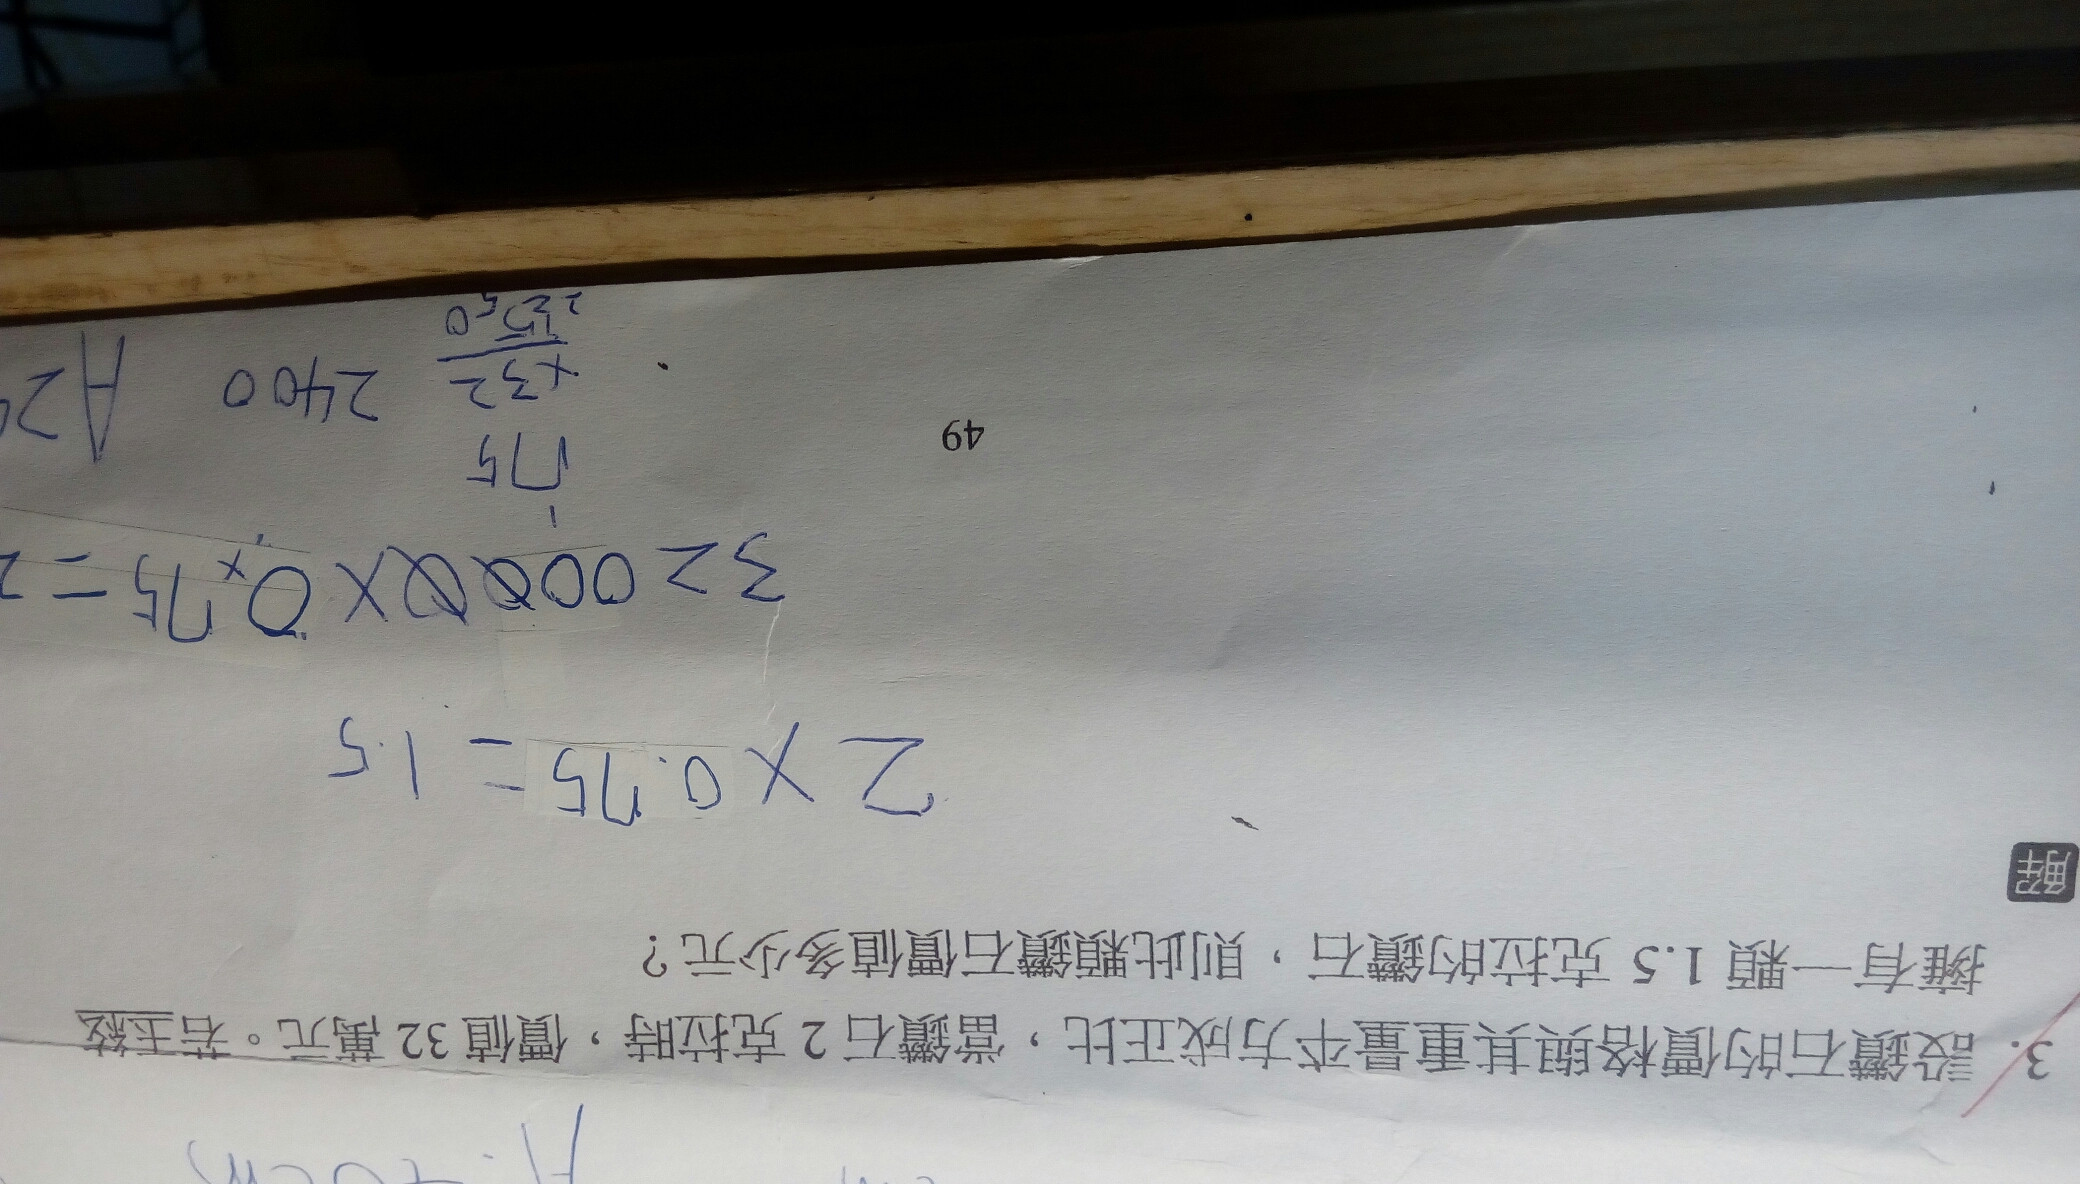 3. 設鑽石的價格與其重量平方成正比，當鑽石 2 克拉時，價值 32 萬元。若玉銓
擁有一顆 1.5 克拉的鑽石，則此顆鑽石價值多少元？
解
2 × 0.75 = 1.5
320000 × 0.75 = 2
75
×32
150
225
2400
A 2
49